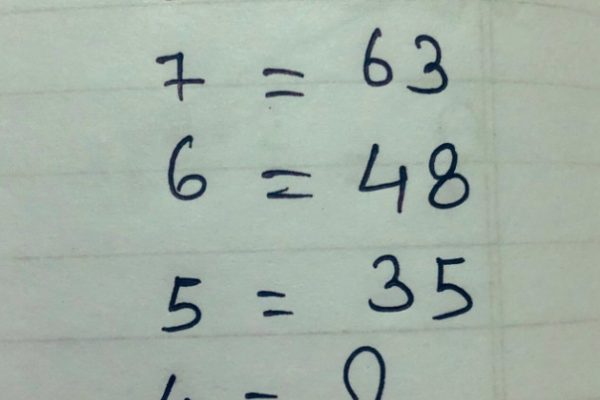 7 = 63
6 = 48
5 = 35